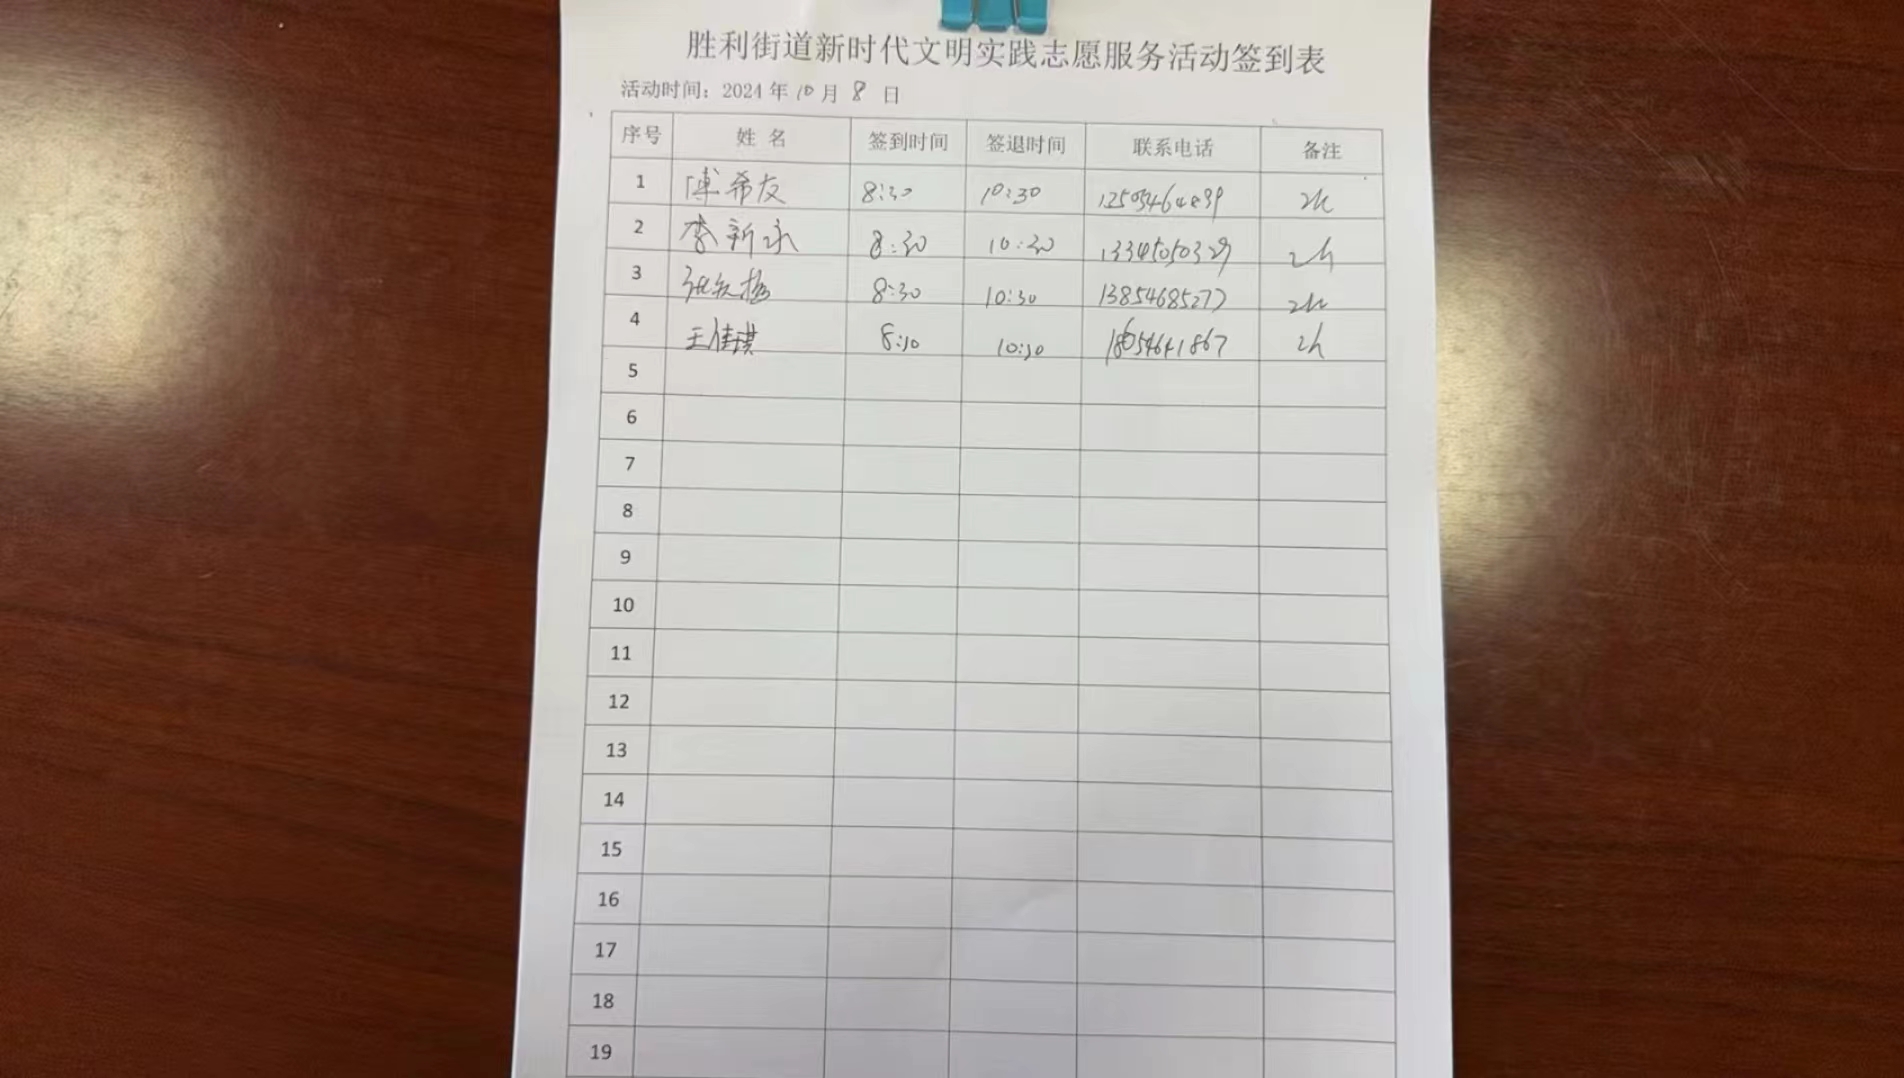 胜利街道新时代文明实践志愿服务活动签到表
活动时间：2024年10月8日
序号 姓名 签到时间 签退时间 联系电话 备注
1 希友 8:30 10:30 2h
2 李新永 8:30 10:30 13345050329 2h
3 张 8:30 10:30 13854685277 2h
4 王佳琪 8:30 10:30 2h
5
6
7
8
9
10
11
12
13
14
15
16
17
18
19